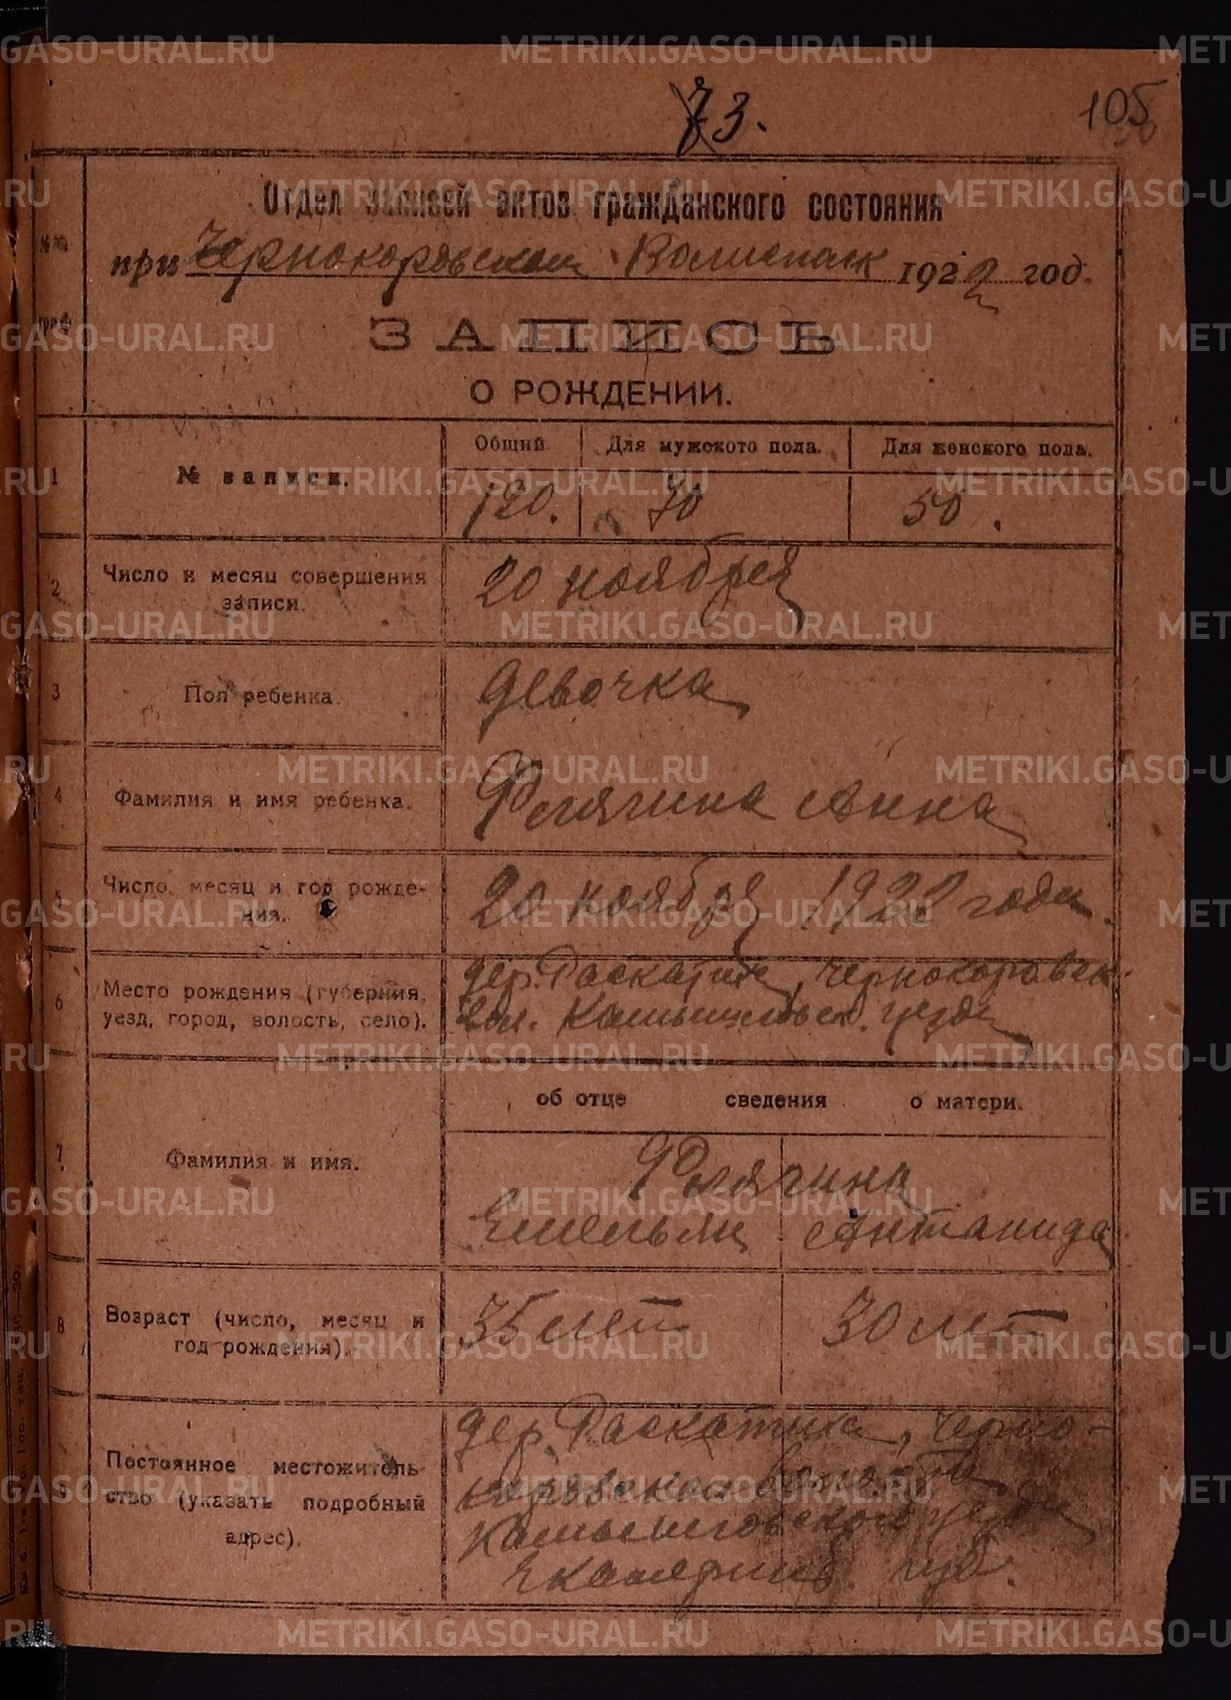 73.
105
Отдел записей актов гражданского состояния
№№
граф
при Чернокоровском Волисполк 1922 год.
ЗАПИСЬ
О РОЖДЕНИИ.
1
№ записи.
Общий
Для мужского пола.
Для женского пола.
120.
70
50.
2
Число и месяц совершения
записи.
20 ноября
3
Пол ребенка.
Девочка
4
Фамилия и имя ребенка.
Анна
5
Число, месяц и год рожде-
ния.
20 ноября 1922 года.
6
Место рождения (губерния,
уезд, город, волость, село).
дер. Раскатиха, Чернокоровск.
вол. Камышловск. уезда
об отце сведения о матери.
7
Фамилия и имя.
Емельян
Антанида
8
Возраст (число, месяц и
год рождения).
35 лет
30 лет
Постоянное местожитель-
ство (указать подробный
адрес).
дер. Раскатиха, Черно-
коровской волости
Камышловского уезда
Екатеринб. губ.
METRIKI.GASO-URAL.RU